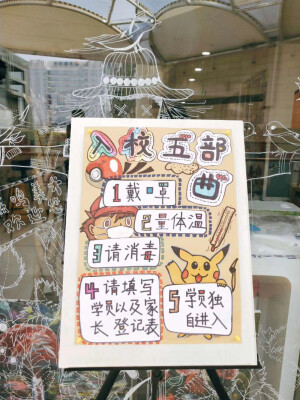 入校五部
曲
1 戴口罩
2 量体温
3 请消毒
4 请填写
学员以及家
长登记表
5 学员独
自进入